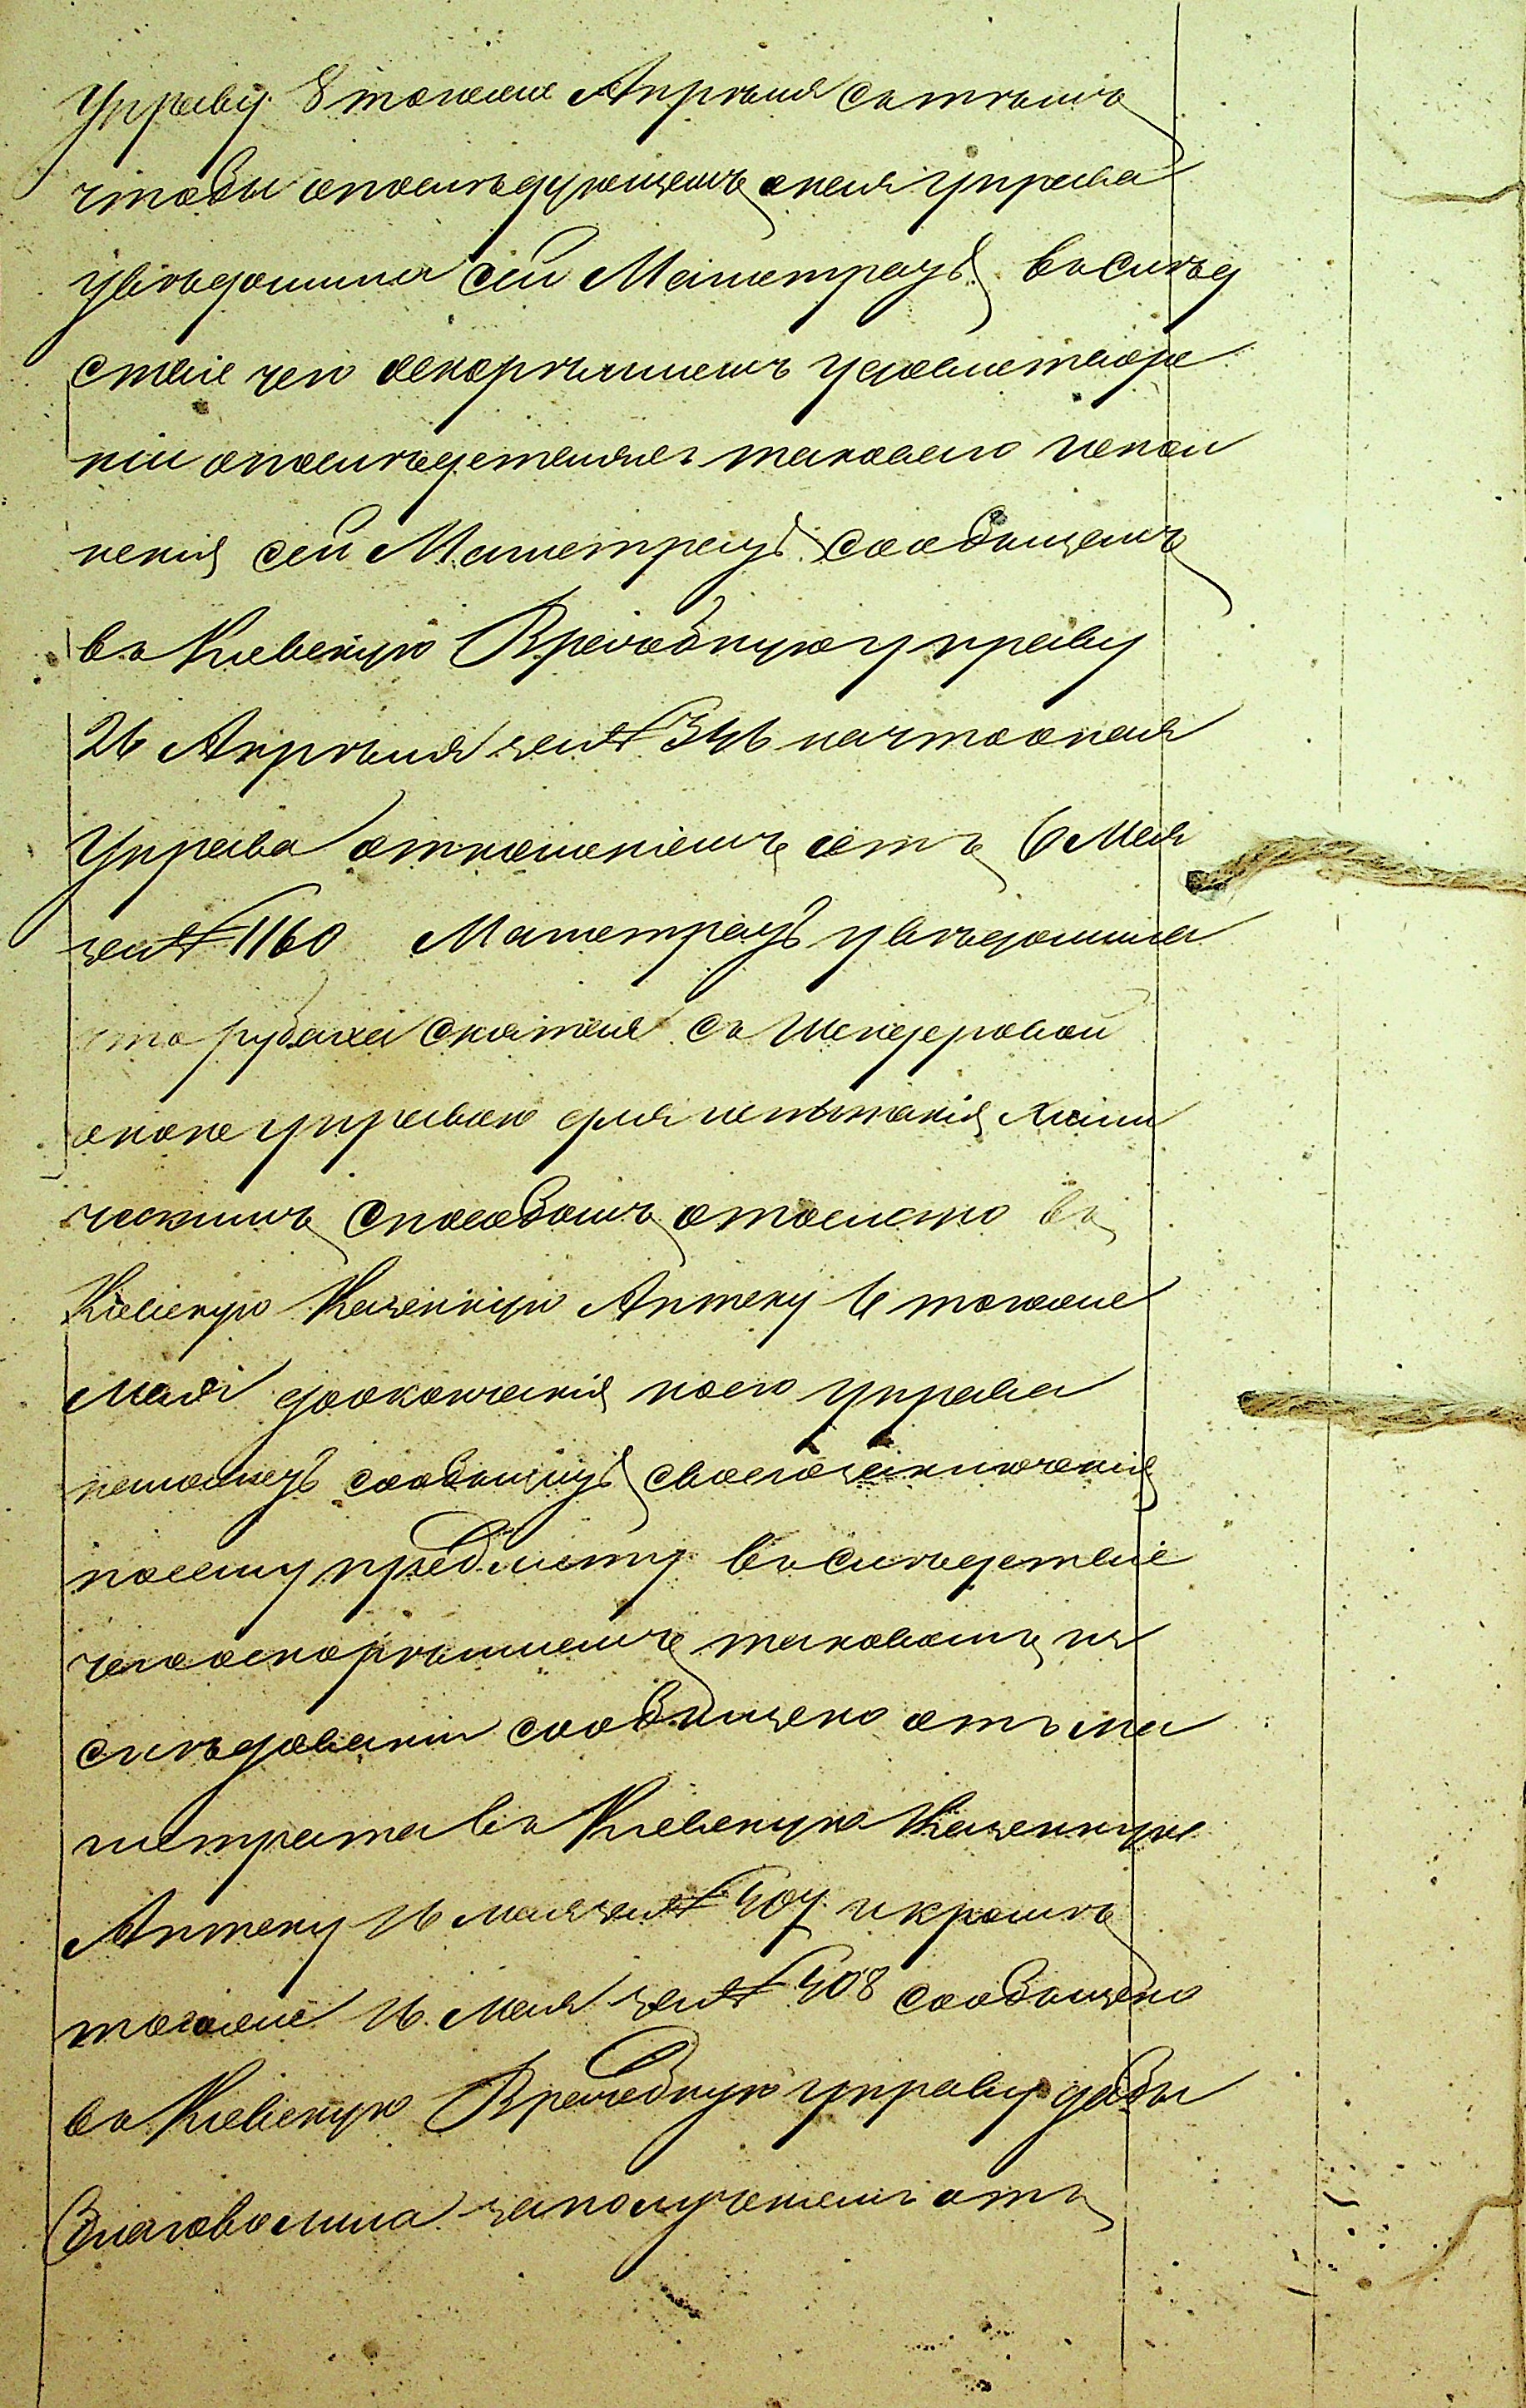 Управу 8 тогоже Апрѣля сътѣмъ
чтобы опослѣдующемъ оная управа
увѣдомила сей Магистратъ, въслѣд
ствіе чего оскорѣйшемъ удовлетворе
ніи опослѣдствіяхъ таковаго испол
ненія сей Магистратъ сообщалъ
въ Кіевскую Врачебную управу
26 Апрѣля за № 346 начто оная
Управа отношеніемъ отъ 6 Мая
за № 1160 Магистратъ увѣдомила
что рубаха снятая съ
оною управою для испытанія хими
ческимъ способомъ отослано въ
Кіевскую Казенную Аптеку 6 тогоже
Мая доокончанія коего управа
неможетъ сообщить своего заключенія
посему предмету въслѣдствіе
чего оскорѣйшемъ таковомъ из
слѣдованіи сообщено отъ ма
гистрата въ Кіевскую Казенную
Аптеку 16 мая за № 407 и кромѣ
тогоже 16 Мая за № 408 сообщено
въ Кіевскую Врачебную управу дабы
благоволила заполученіемъ отъ